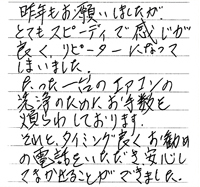 昨年もお願いしましたが、
とてもスピーディで感じが
良く、リピーターになって
しまいました。
たった一台のエアコンの
洗浄のためにお手数を
煩らわしております。
それと、タイミング良くお勧め
の電話をいただき安心し
てまかせることができました。